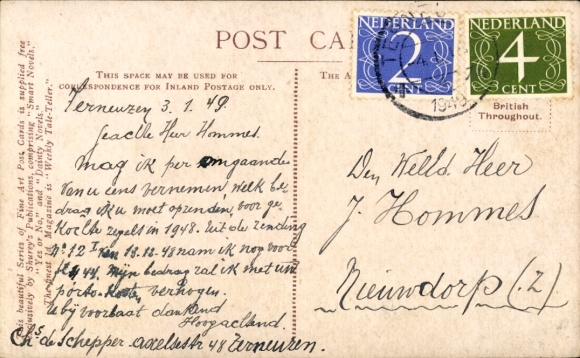 This beautiful Series of Fine Art Post Cards is supplied free
exclusively by Shurey's Publications, comprising "Smart Novels,"
"Yes or No," and "Dainty Novels."
The finest 1d. Magazine is "Weekly Tale-Teller."
POST CA
THIS SPACE MAY BE USED FOR
CORRESPONDENCE FOR INLAND POSTAGE ONLY.
THE A
NEDERLAND
2
CENT
NEDERLAND
4
CENT
British
Throughout.
Terneuzen 3.1.49.
Geachte Heer Hommes.
Mag ik per omgaande
van u eens vernemen welk be
drag ik u moet opzenden, voor ge
kochte zegels in 1948. Uit de zending
no 12 van 13.12.48 nam ik nog voor
44. Mijn bedrag zal ik met uw
porto-kosten verhogen.
U bij voorbaat dankend
Hoogachtend.
Chs de Schepper. Axelsestr 48 Terneuzen.
Den Weled. Heer
J. Hommes
Nieuwdorp (Z.)